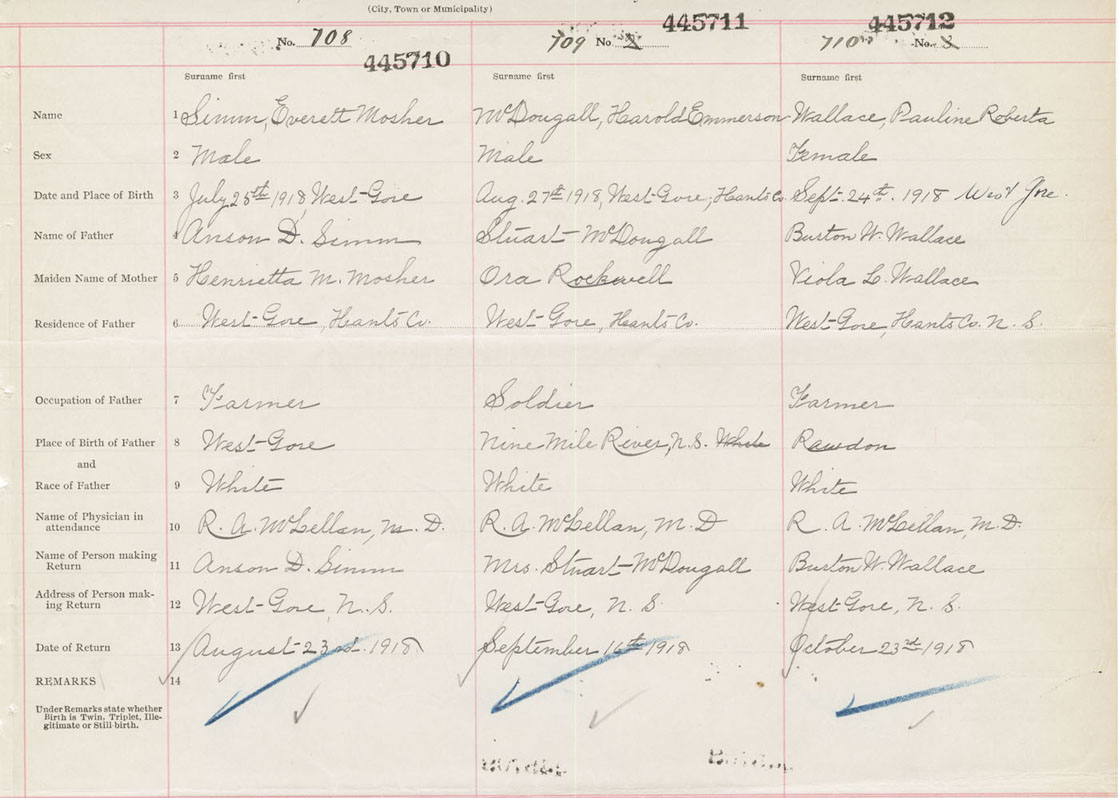 (City, Town or Municipality)
No. 708 445710
709 No. 2 445711
710 No. 3 445712
Surname first Surname first Surname first
Name 1 Simm, Everett Mosher McDougall, Harold Emmerson Wallace, Pauline Roberta
Sex 2 Male Male Female
Date and Place of Birth 3 July 25th 1918, West-Gore Aug. 27th 1918, West-Gore, Hants Co. Sept. 24th. 1918 West Gore.
Name of Father 4 Anson D. Simm Stuart McDougall Burton W. Wallace
Maiden Name of Mother 5 Henrietta M. Mosher Ora Rockwell Viola L. Wallace
Residence of Father 6 West-Gore, Hants Co. West-Gore, Hants Co. West-Gore, Hants Co. N. S.
Occupation of Father 7 Farmer Soldier Farmer
Place of Birth of Father 8 West-Gore Nine Mile River, N.S. White Rawdon
and
Race of Father 9 White White White
Name of Physician in
attendance 10 R. A. McLellan, M. D. R. A. McLellan, M. D R. A McLellan, M. D.
Name of Person making
Return 11 Anson D. Simm Mrs. Stuart McDougall Burton W. Wallace
Address of Person mak-
ing Return 12 West-Gore, N. S. West-Gore, N. S. West-Gore, N. S.
Date of Return 13 August 23rd. 1918 September 16th 1918 October 23rd 1918
REMARKS 14
Under Remarks state whether
Birth is Twin, Triplet, Ille-
gitimate or Still-birth.